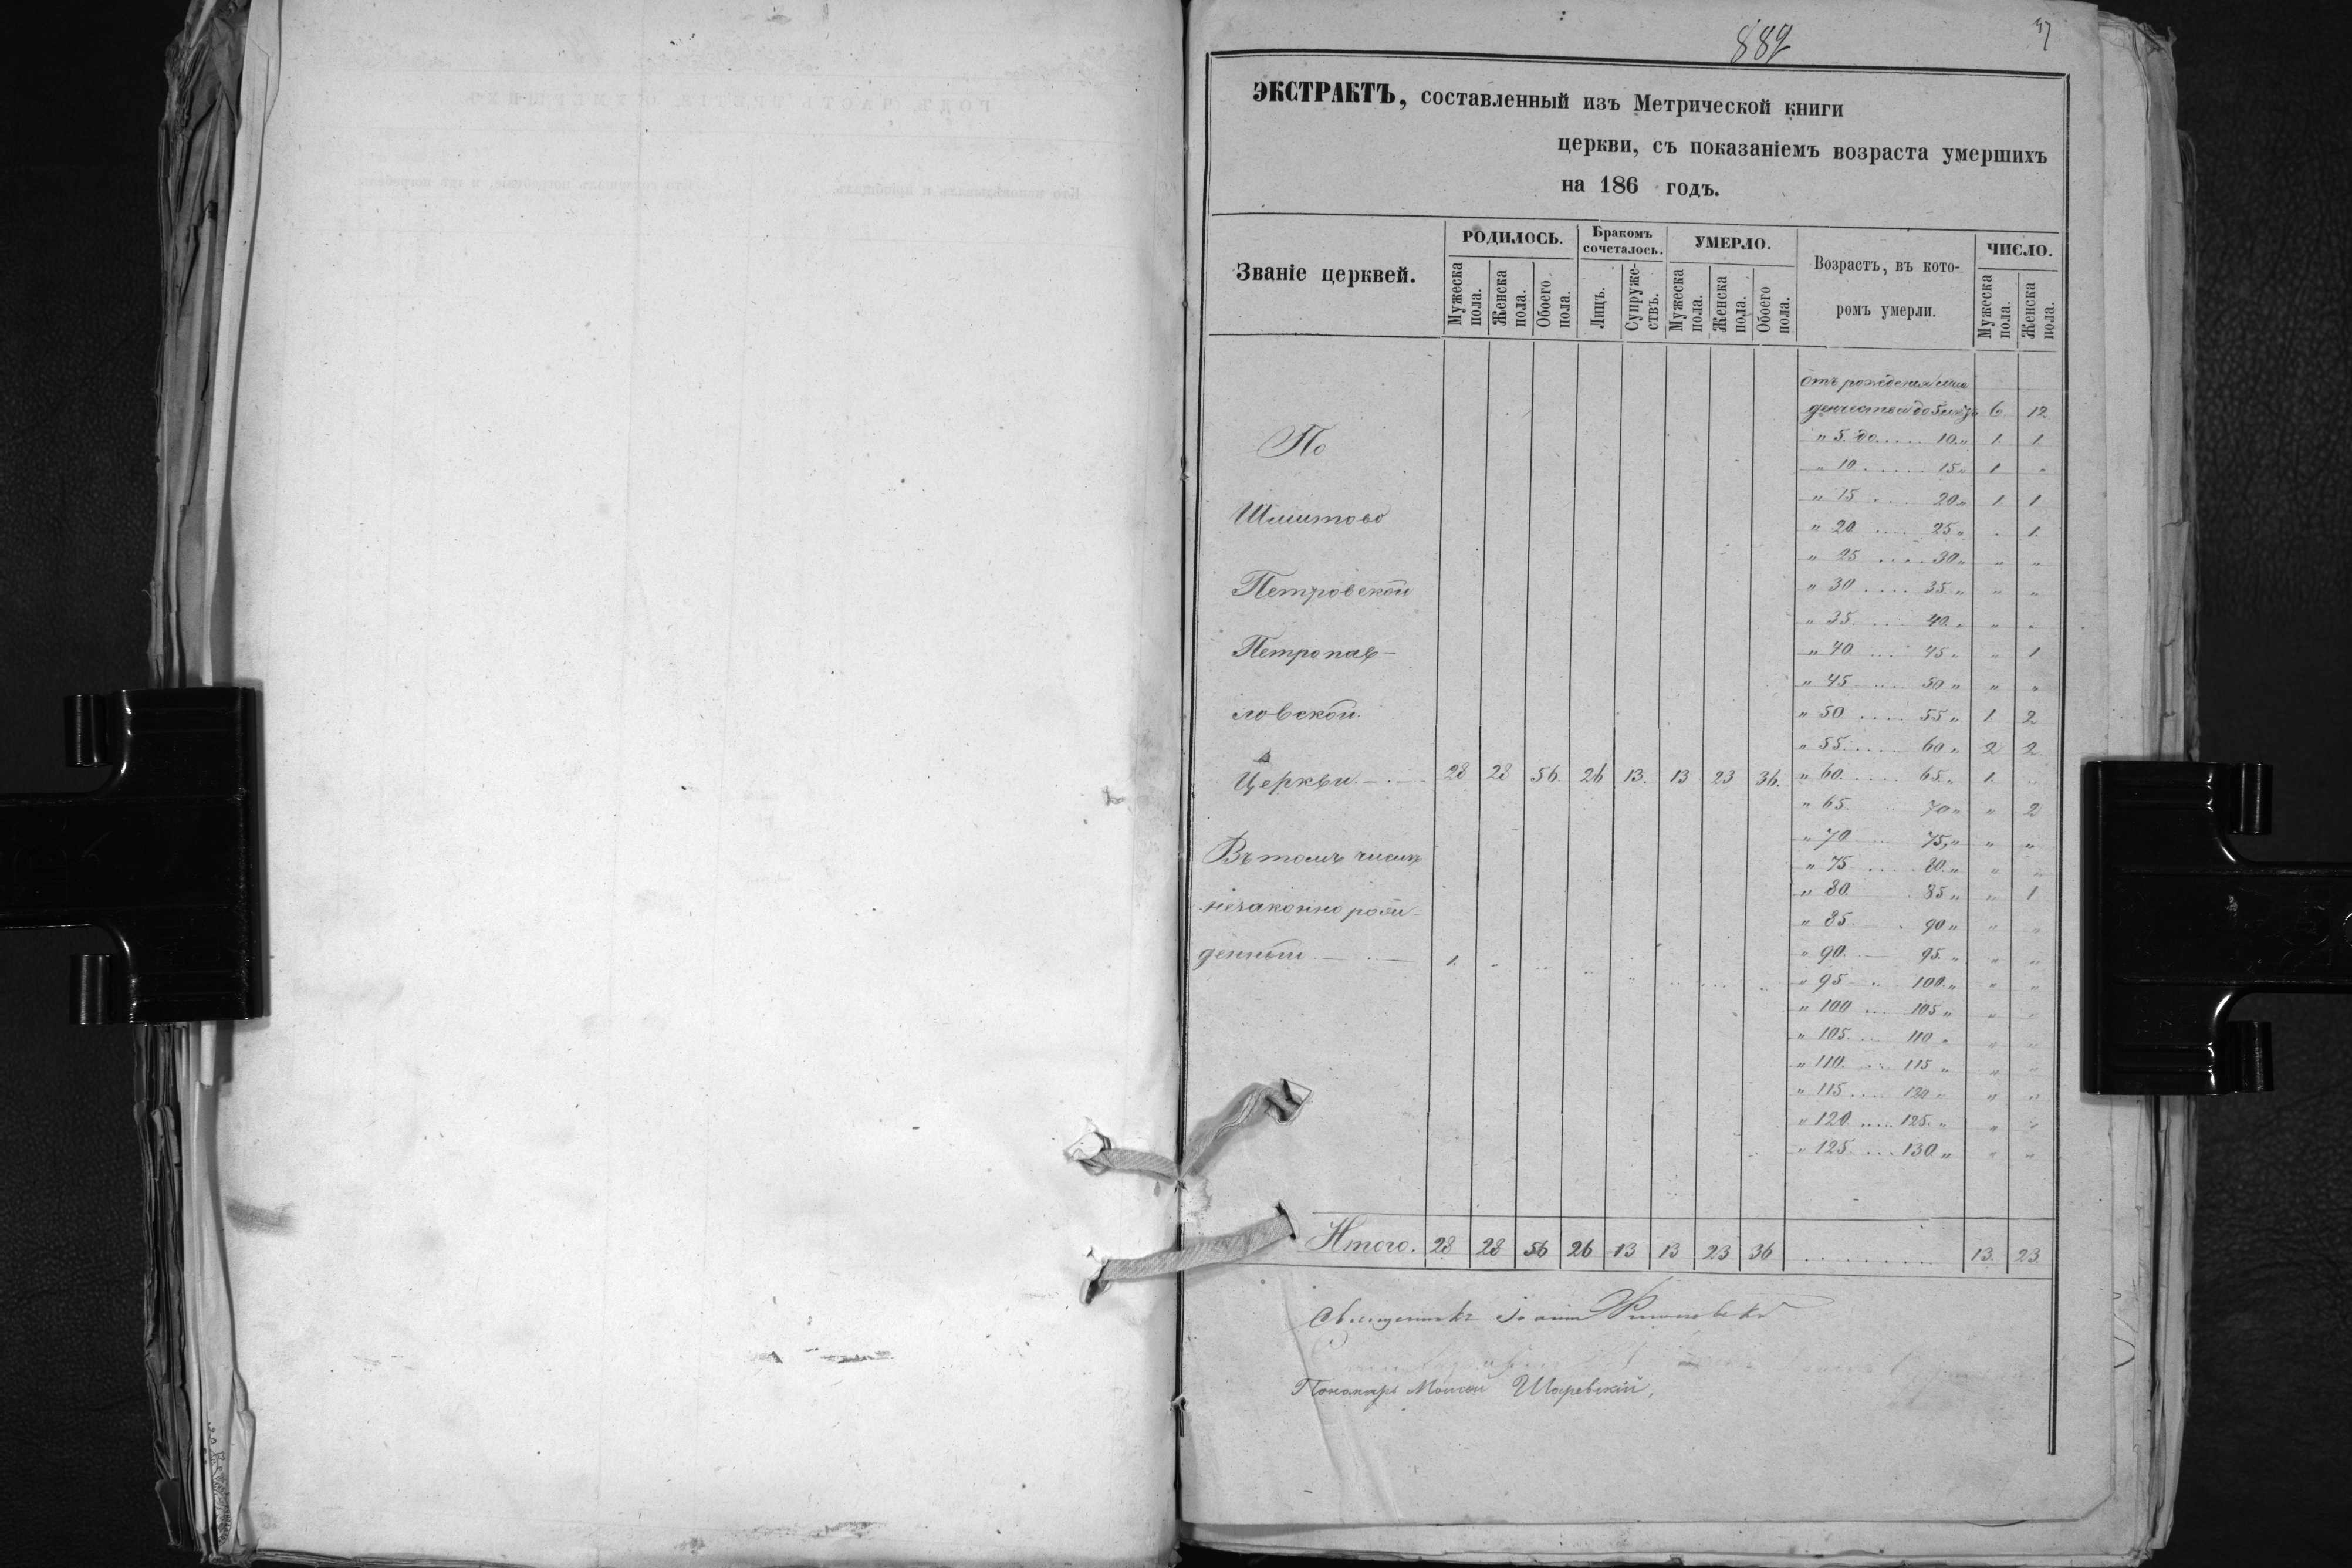 889
47
ЭКСТРАКТЪ, составленный изъ Метрической книги
церкви, съ показаніемъ возраста умершихъ
на 186 годъ.
Званіе церквей.
РОДИЛОСЬ.
Мужеска пола.
Женска пола.
Обоего пола.
Бракомъ сочеталось.
Лицъ.
Супружествъ.
УМЕРЛО.
Мужеска пола.
Женска пола.
Обоего пола.
Возрастъ, въ которомъ умерли.
ЧИСЛО.
Мужеска пола.
Женска пола.
отъ рожденія
до 5 6. 12
" 5. до..... 10. " 1. 1.
По
" 10 ...... 15 " 1 "
" 15 .... 20 " 1. 1
" 20 .... 25 " . 1.
" 25 .... 30 " " "
Петровской
" 30 .... 35 " " "
" 35 .... 40 " " "
Петропав-
" 40 ... 45 " " 1
" 45 .... 50 " " "
ловской
" 50 .... 55 " 1. 2
" 55 .... 60 " 2 2.
Церкви. — 28 28 56. 26 13. 13 23 36.
" 60 ..... 65 " 1. ..
" 65 .. 70 " " 2
" 70 ... 75 " " "
Въ томъ числѣ
" 75 .... 80. " " "
" 80. 85 " " 1
незаконно рож-
" 85 . 90 " " "
денныхъ — 1. - .. .. .. .. ... ..
" 90. — 95. " " "
" 95 .. 100. " " "
" 100 ... 105 " " "
" 105. ... 110 " " "
" 110. ... 115 " " "
" 115 .... 120 " " "
" 120. .... 125. " " "
" 125 .... 130. " " "
Итого. 28 28 56 26 13 13 23 36 ......... 13. 23.
Священникъ Іоаннъ
Пономарь Моисей Шаревскій,